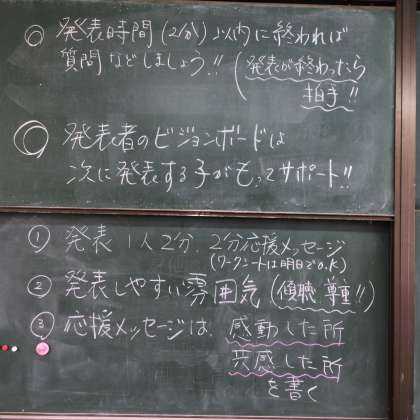 ○ 発表時間(2分)以内に終われば
質問などしましょう!!(発表が終わったら
拍手!!
◎ 発表者のビジョンボードは
次に発表する子がもってサポート!!
① 発表 1人2分. 2分応援メッセージ
(ワークシートは明日でO.K)
② 発表しやすい雰囲気(傾聴 尊重!!)
③ 応援メッセージは、感動した所
共感した所
を書く